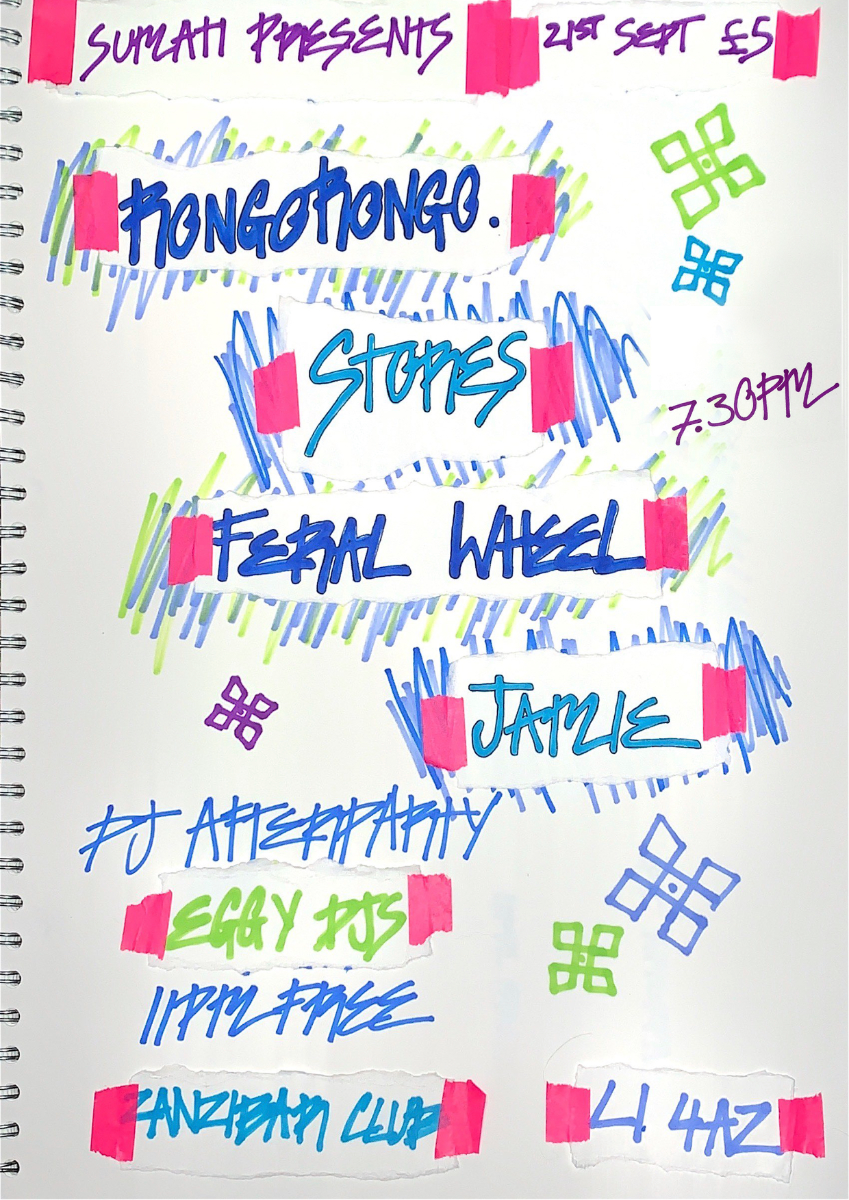 SUMATI PRESENTS
21ST SEPT £5
RONGORONGO.
STORES
7.30PM
FERAL WHEEL
JAMIE
DJ AFTERPARTY
EGGY DJS
11PM FREE
ZANZIBAR CLUB
L1 4AZ